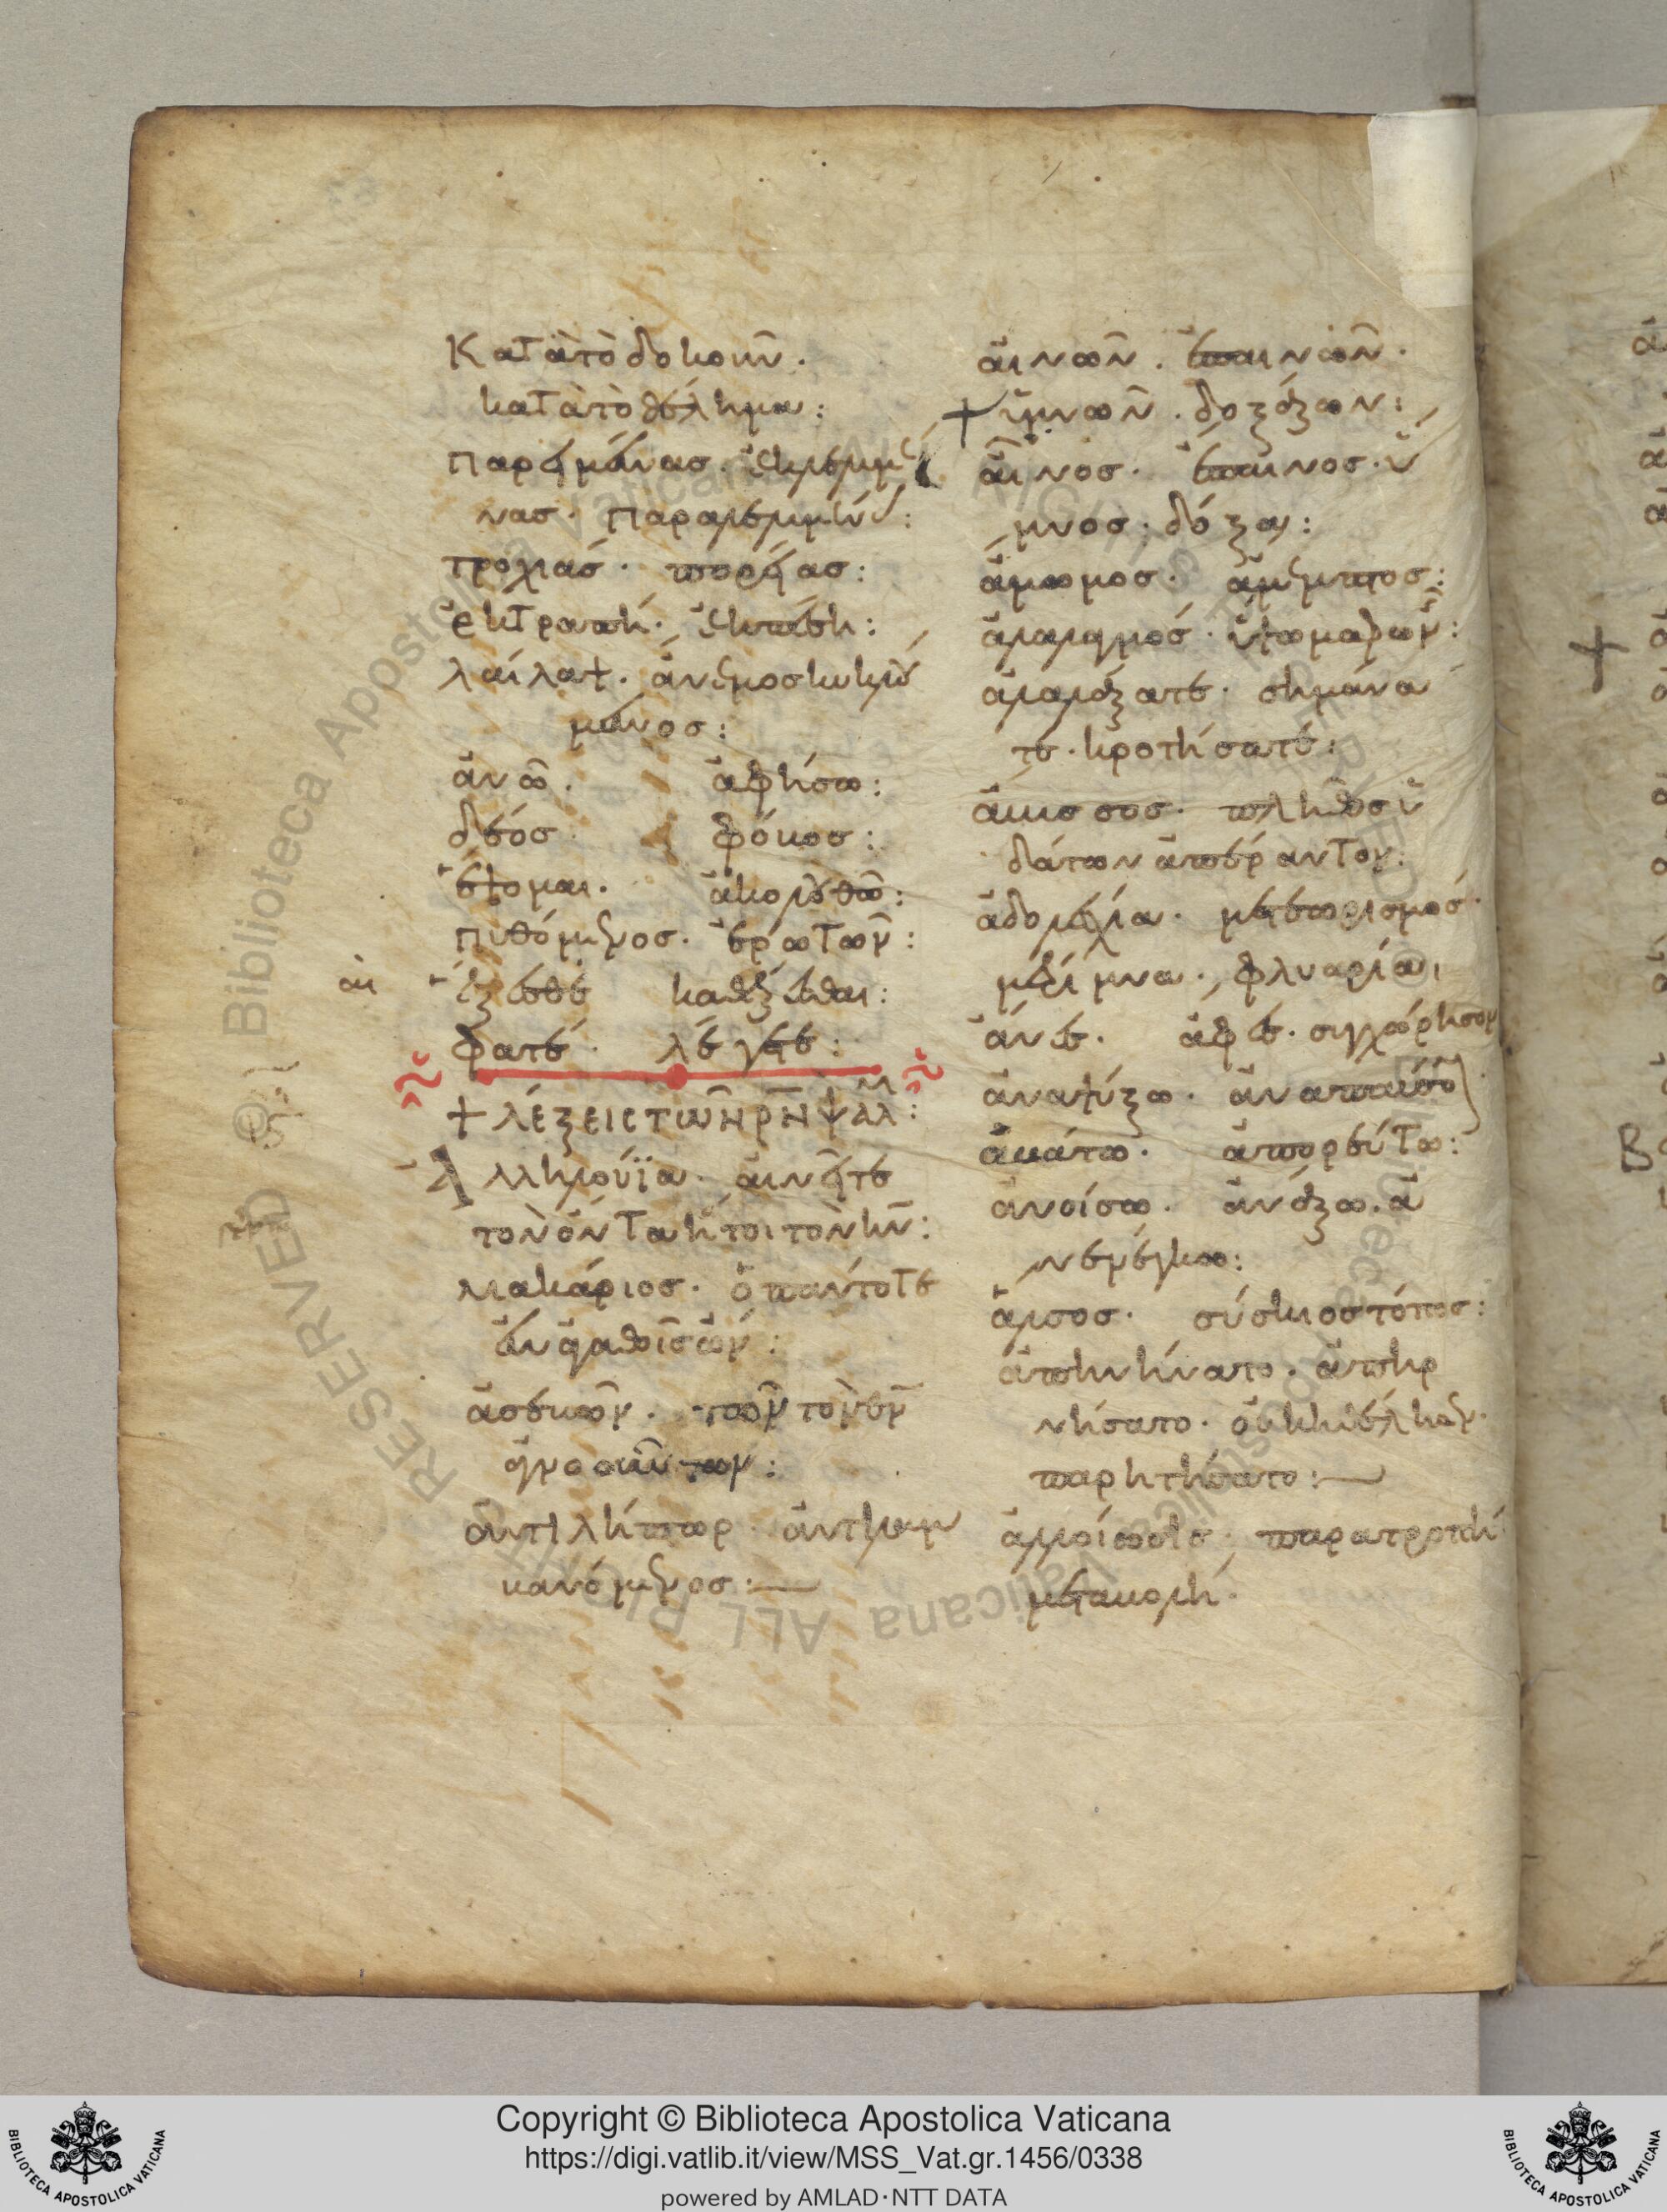 Κατὰ τὸ δοκοῦν.
κατὰ τὸ θέλημα:
παρειμένας. ἐκλελυμέ
νας. παραλελυμέν:
τροχιάς. πορείας:
ἐκτραπῆ. ἐκπέση:
λαίλαψ. ἀνεμος
μενος:
ἀνῶ. ἀφήσω:
δέος. φόβος:
ἕψομαι. ἀκολουθῶ:
πυθόμενος. ἐρωτῶν:
αι ἕζεσθε καθέζεσθαι:
φατέ. λέγετε:
+ λέξεις τῶν ρν ψαλμ:
Ἀλληλούϊα. αἰνεῖτε
τὸν ὄντα ἤτοι τὸν κν:
μακάριος. ὁ πάντοτε
ἐν ἀγαθοῖς ὤν:
ἀσεβῶν. τῶν τὸν θν
ἀγνοούντων:
ἀντιλήπτωρ. ἀντιλαμ
βανόμενος:
αἰνῶν. ἐπαινῶν.
+ ὑμνῶν. δοξάζων:
αἶνος. ἔπαινος. ὕ
μνος. δόξα:
ἄμωμος. ἄμεμπτος:
ἀλαλαγμός.
ἀλαλάξατε. σημάνα
τε. κροτήσατε:
ἄβυσσος. πλῆθος ὑ
δάτων ἀπέραντον:
ἀδολεσχία. μετεωρισμός.
μέριμνα. φλυαρία:
ἄνες. ἄφες. συγχώρησον
ἀναψύξω. ἀναπαύσο
ἀβάτω. ἀπορεύτω:
ἀνοίσω. ἀνάξω. ἀ
νενέγκω:
ἄλσος. σύσκιος τόπος:
ἀπηνήνατο. ἀπηρ
νήσατο. οὐκ ἠθέλησεν.
παρητήσατο:
ἀλλοίωσις. παρατροπή
μεταβολή.
Copyright © Biblioteca Apostolica Vaticana
https://digi.vatlib.it/view/MSS_Vat.gr.1456/0338
powered by AMLAD·NTT DATA
BIBLIOTECA APOSTOLICA VATICANA
BIBLIOTECA APOSTOLICA VATICANA